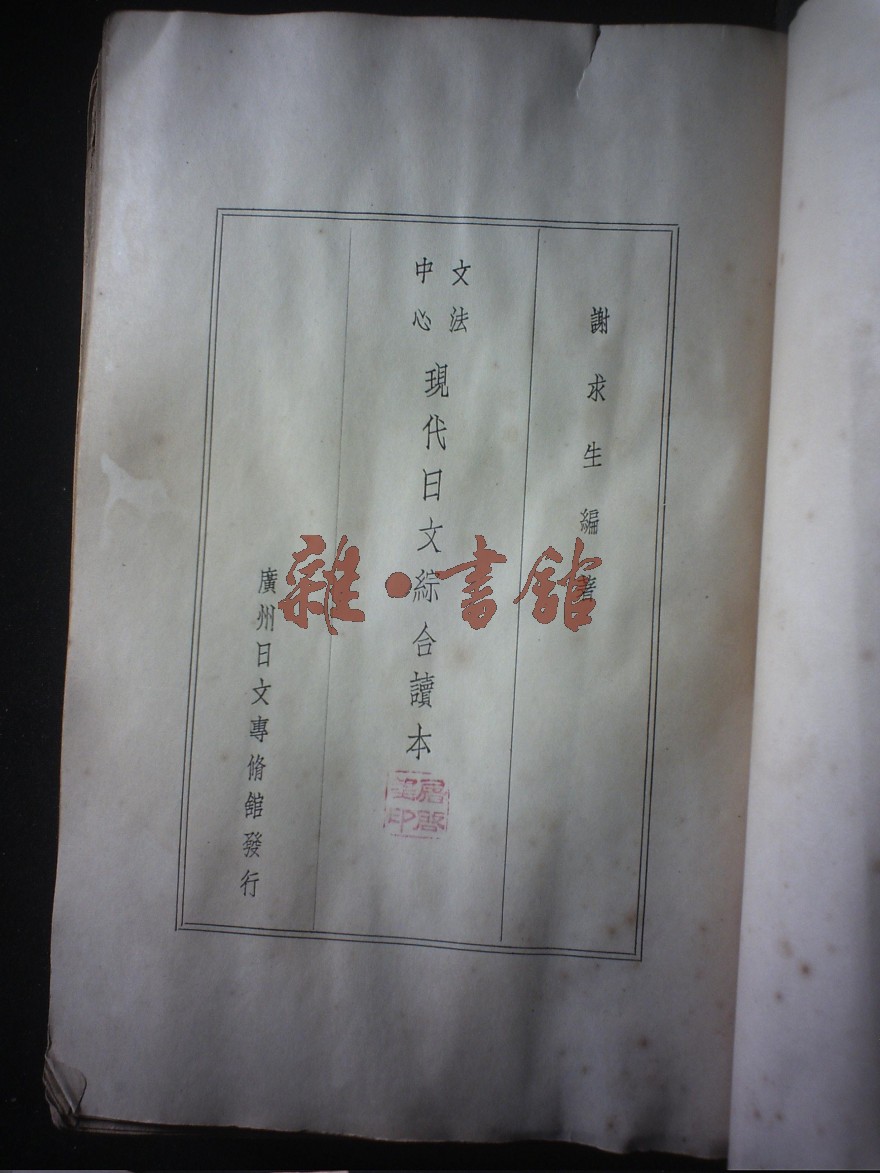 謝求生編著
文法
中心
現代日文綜合讀本
廣州日文專修館發行
雜·書館